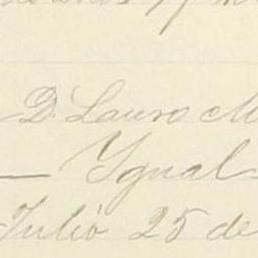 D. Lauro M
— Ygual
Julio 25 de